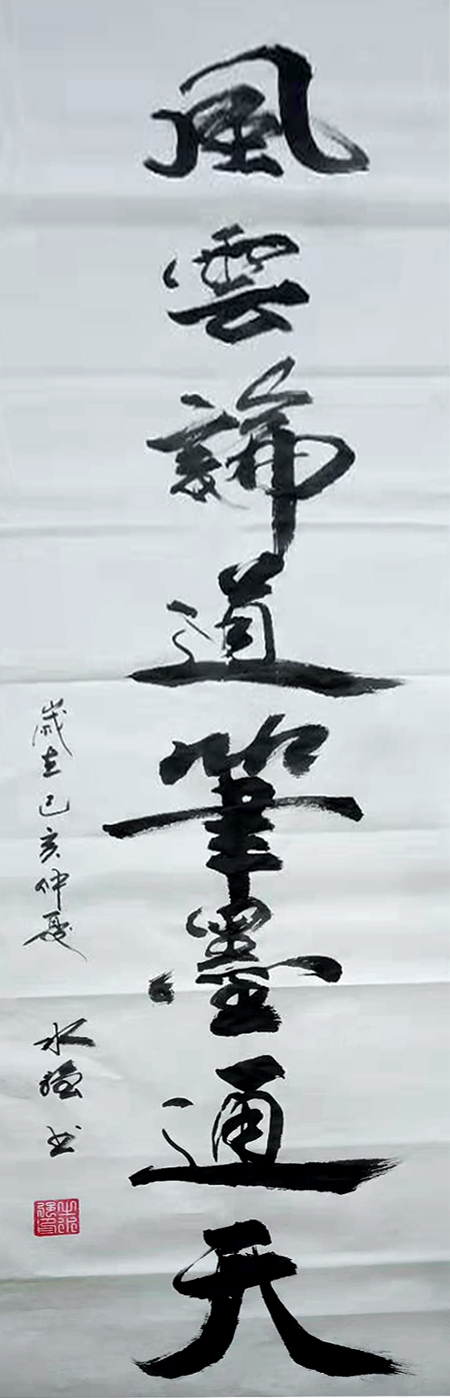 風雲論道筆墨通天
歲在己亥仲夏
水強书